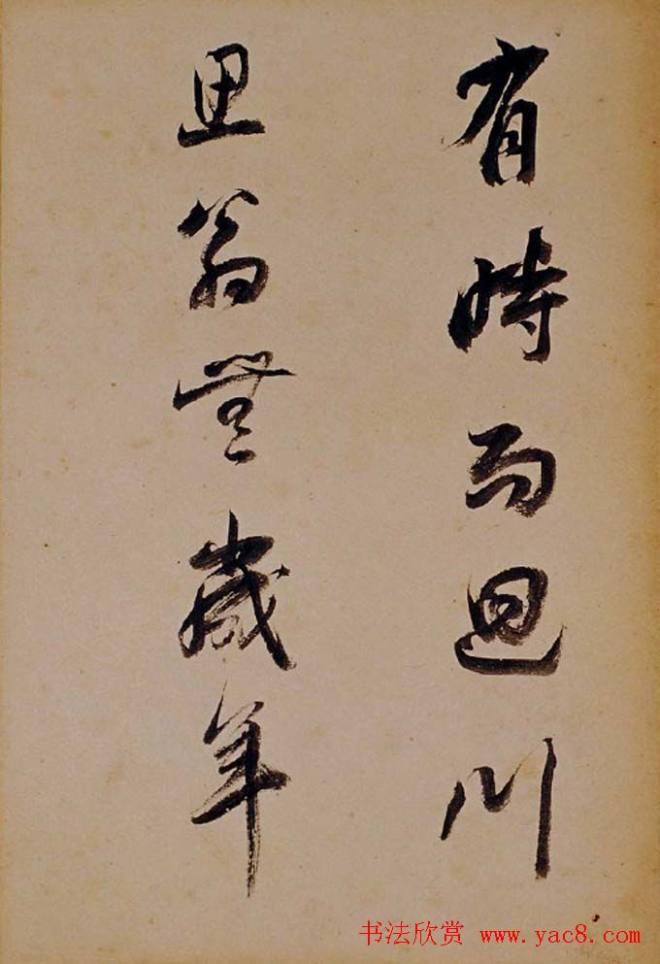 有時而迴川
思翁無歲年
书法欣赏 www.yac8.com